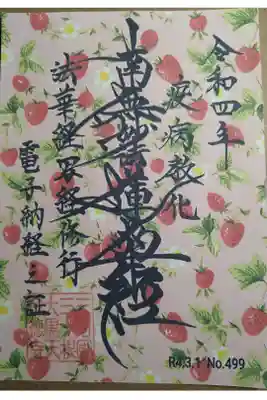 令和四年
疫病教化
南無妙法蓮華経
法華経写経修行
電子納経之証
R4.3.1 No.499